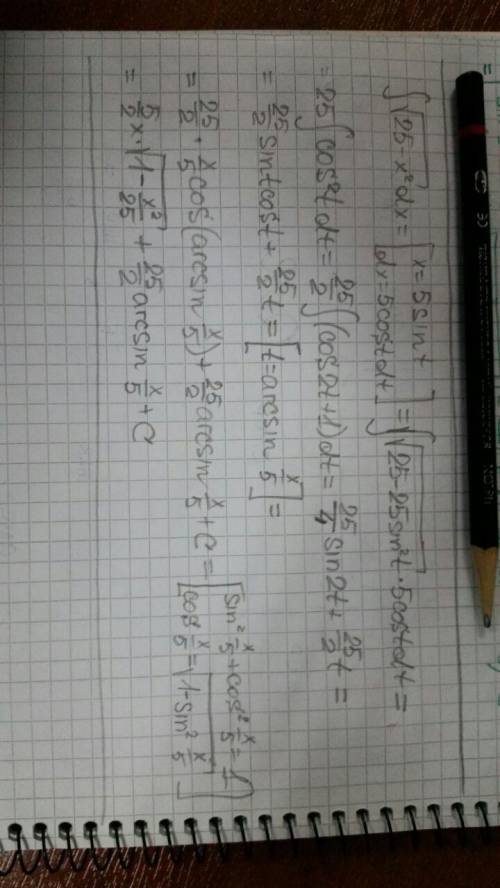 ∫√(25-x²)dx = [x=5sint
dx=5costdt] = ∫√(25-25sin²t)·5costdt =
= 25∫cos²tdt = 25/2 ∫(cos2t+1)dt = 25/4 sin2t + 25/2 t =
= 25/2 sintcost + 25/2 t = [t=arcsin x/5] =
= 25/2 · x/5 cos(arcsin x/5) + 25/2 arcsin x/5 + C = [sin² x/5 + cos² x/5 = 1
cos x/5 = √(1-sin² x/5)]
= 5/2 x·√(1-x²/25) + 25/2 arcsin x/5 + C